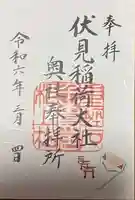 奉拝
伏見稲荷大社
奥社奉拝所
令和六年三月四日